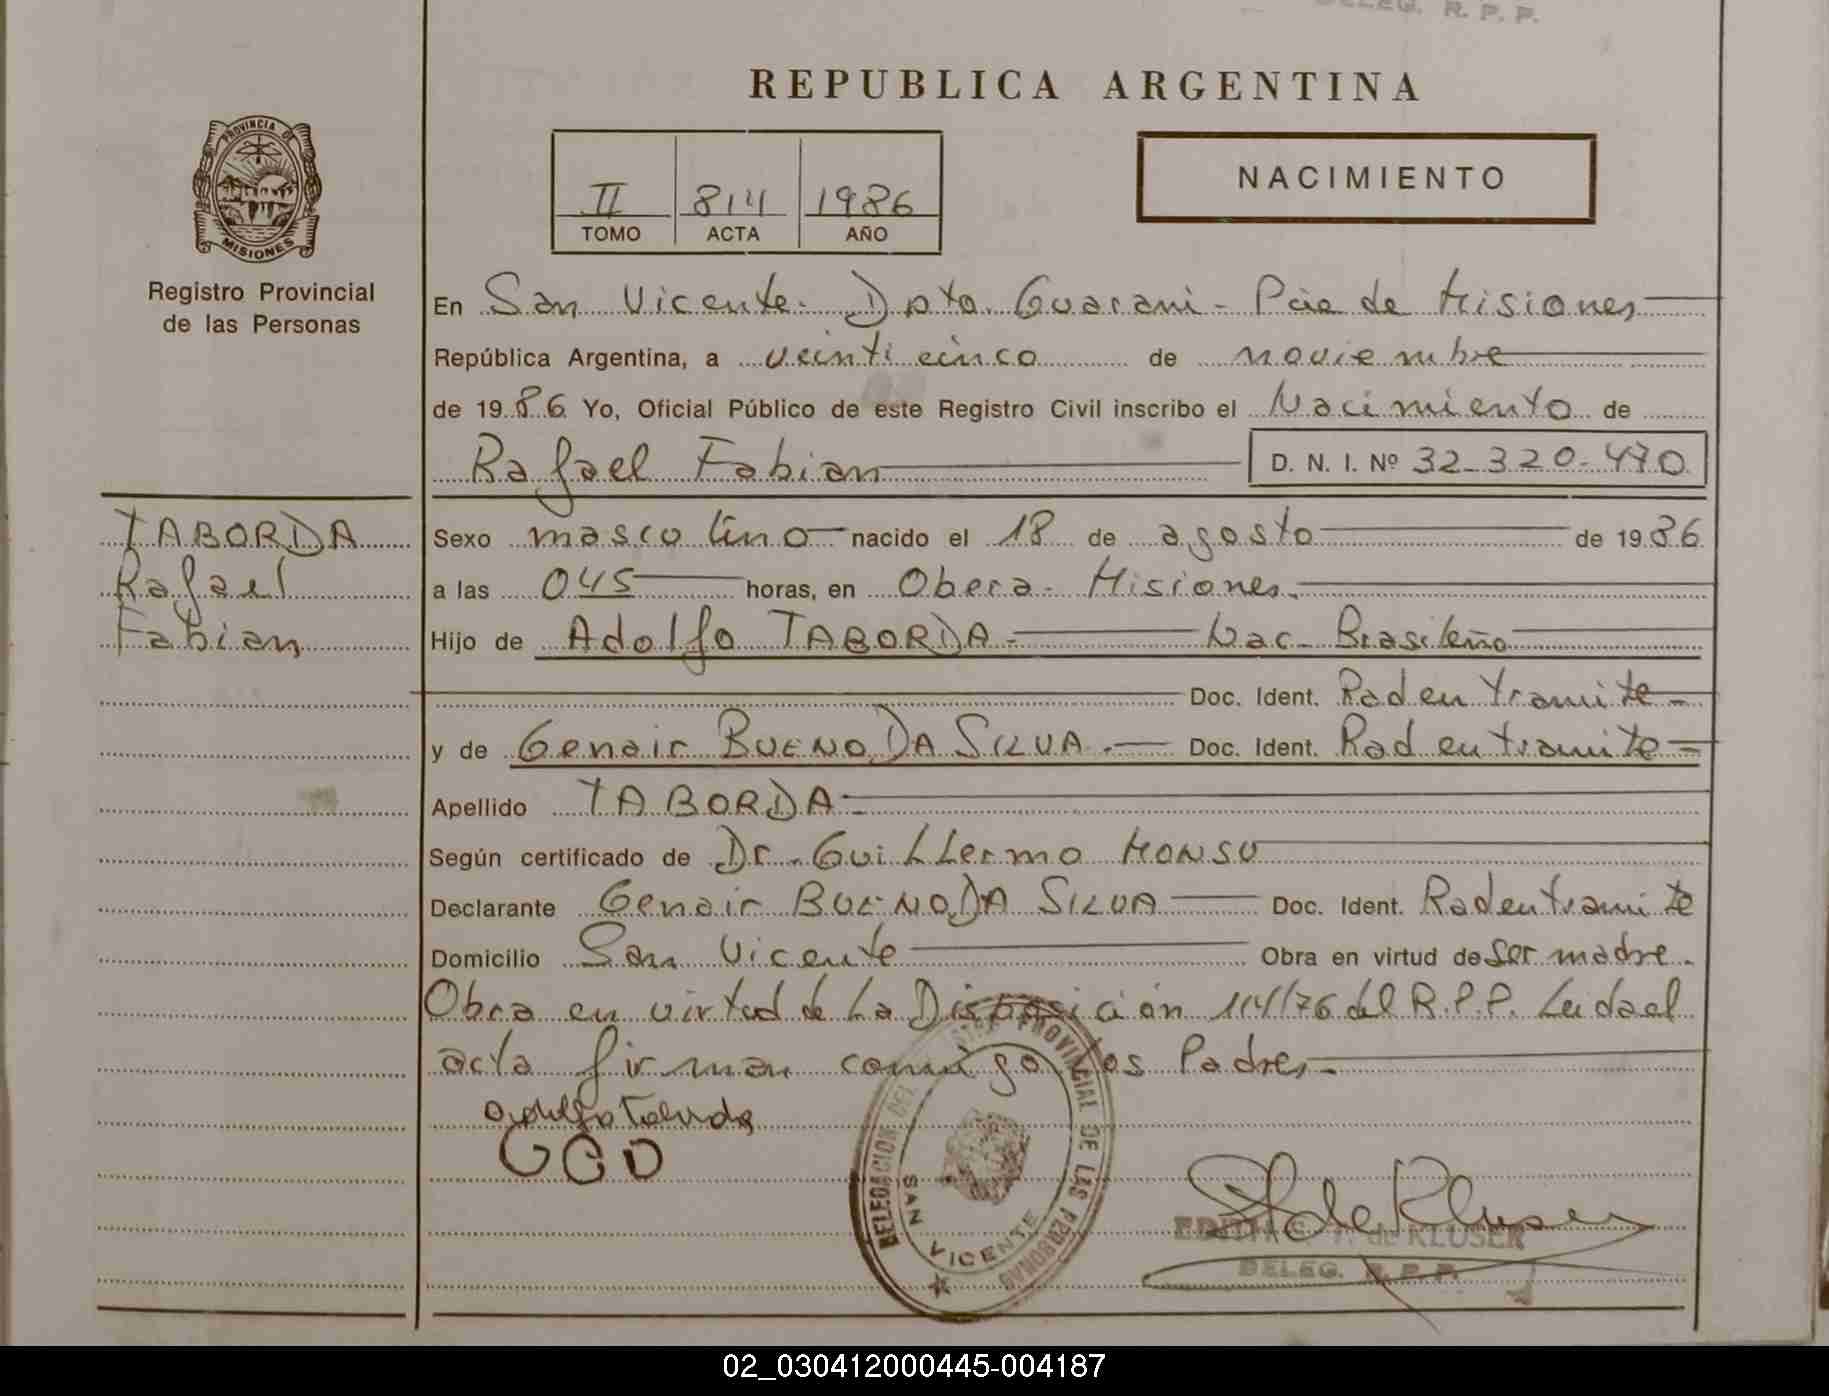 DELEG. R. P. P.
REPUBLICA ARGENTINA
PROVINCIA D
MISIONES
Registro Provincial
de las Personas
II 814 1986
TOMO ACTA AÑO
NACIMIENTO
En San Vicente. Dpto. Guarani - Pcia de Misiones
República Argentina, a veinticinco de noviembre
de 1986 Yo, Oficial Público de este Registro Civil inscribo el Nacimiento de
Rafael Fabian
D. N. I. Nº 32-320-470
TABORDA
Rafael
Fabian
Sexo masculino nacido el 18 de agosto de 1986
a las 045 horas, en Obera - Misiones.
Hijo de Adolfo TABORDA - Nac - Brasileño
Doc. Ident. Rad en tramite -
y de Genair BUENO DA SILVA . - Doc. Ident. Rad en tramite -
Apellido TABORDA -
Según certificado de Dr. Guillermo MONSU
Declarante Genair BUENO DA SILVA Doc. Ident. Rad en tramite
Domicilio San Vicente Obra en virtud de ser madre.
Obra en virtud de La Disposición 114/76 del R.P.P. Leida el
acta firman comigo los Padres -
GCD
DELEGACION DEL PROVINCIAL DE LAS PERSONAS
SAN VICENTE
EDITH de KLUSER
DELEG. R. P. P.
02_030412000445-004187